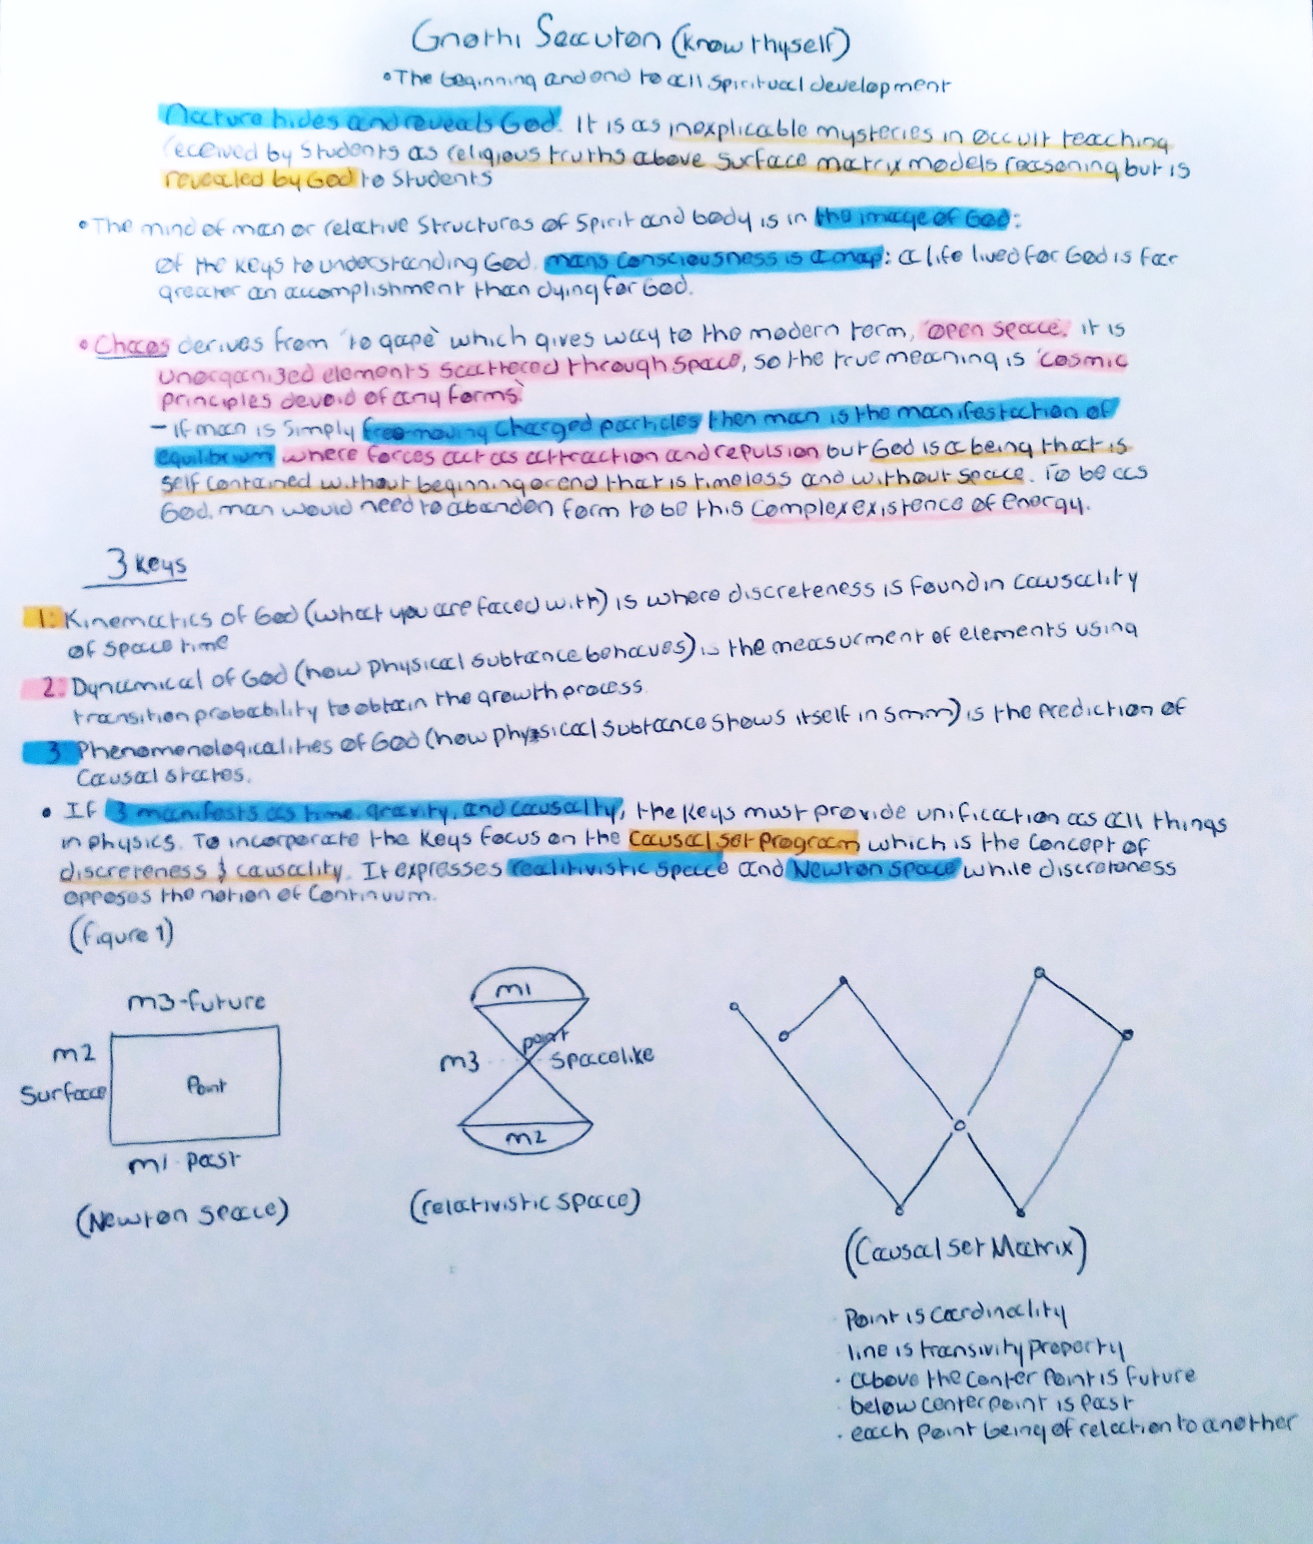 Gnothi Seauton (know thyself)
• The beginning and end to all Spiritual development
Nature hides and reveals God. It is as inexplicable mysteries in occult teaching
received by Students as religious truths above surface matrix models reasoning but is
revealed by God to Students
• The mind of man or relative Structures of Spirit and body is in the image of God:
of the keys to understanding God. mans consciousness is a map: a life lived for God is far
greater an accomplishment than dying for God.
• Chaos derives from 'to gape' which gives way to the modern term, 'open space.' it is
unorganized elements scattered through space, so the true meaning is 'cosmic
principles devoid of any forms'
- if man is simply free-moving charged particles then man is the manifestation of
equilibrium where forces act as attraction and repulsion but God is a being that is
self contained without beginning or end that is timeless and without space. To be as
God, man would need to abandon form to be this complex existence of energy.
3 Keys
1: Kinematics of God (what you are faced with) is where discreteness is found in causality
of space time
2. Dynamical of God (how physical subtance behaves) is the measurment of elements using
transition probability to obtain the growth process.
3 Phenomenologicalities of God (how physical subtance shows itself in 5mm) is the prediction of
Causal states.
• If 3 manifests as time, gravity, and causalty, the keys must provide unification as all things
in physics. To incorporate the keys focus on the causal set program which is the concept of
discreteness & causality. It expresses realitivistic space and Newton space while discreteness
opposes the notion of Continuum.
(figure 1)
m3-future
m2
Surface
Point
m1 past
(Newton space)
m1
point
m3
spacelike
m2
(relativistic space)
(Causal set Matrix)
Point is cardinality
line is transivity property
· above the center point is future
below center point is past
· each point being of relection to another